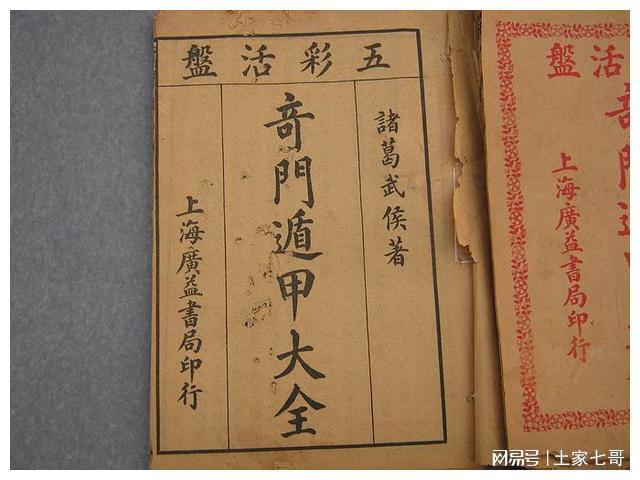 五彩活盤
諸葛武侯著
奇門遁甲大全
上海廣益書局印行
活盤
奇門遁甲
上海廣益書局印行
网易号 | 土家七哥